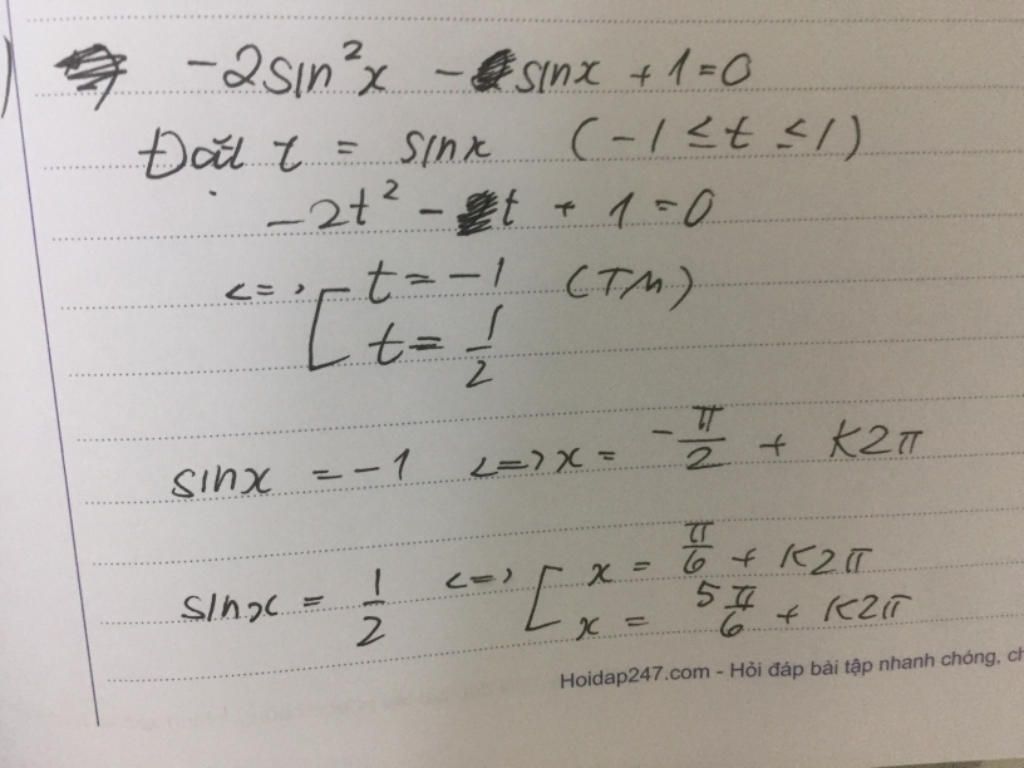 ) -2sin²x - sinx + 1 = 0
Đặt t = sinx (-1 ≤ t ≤ 1)
-2t² - t + 1 = 0
<=> [ t = -1 (TM)
t = 1/2
sinx = -1 <=> x = -π/2 + K2π
sinx = 1/2 <=> [ x = π/6 + K2π
x = 5π/6 + K2π
Hoidap247.com - Hỏi đáp bài tập nhanh chóng,